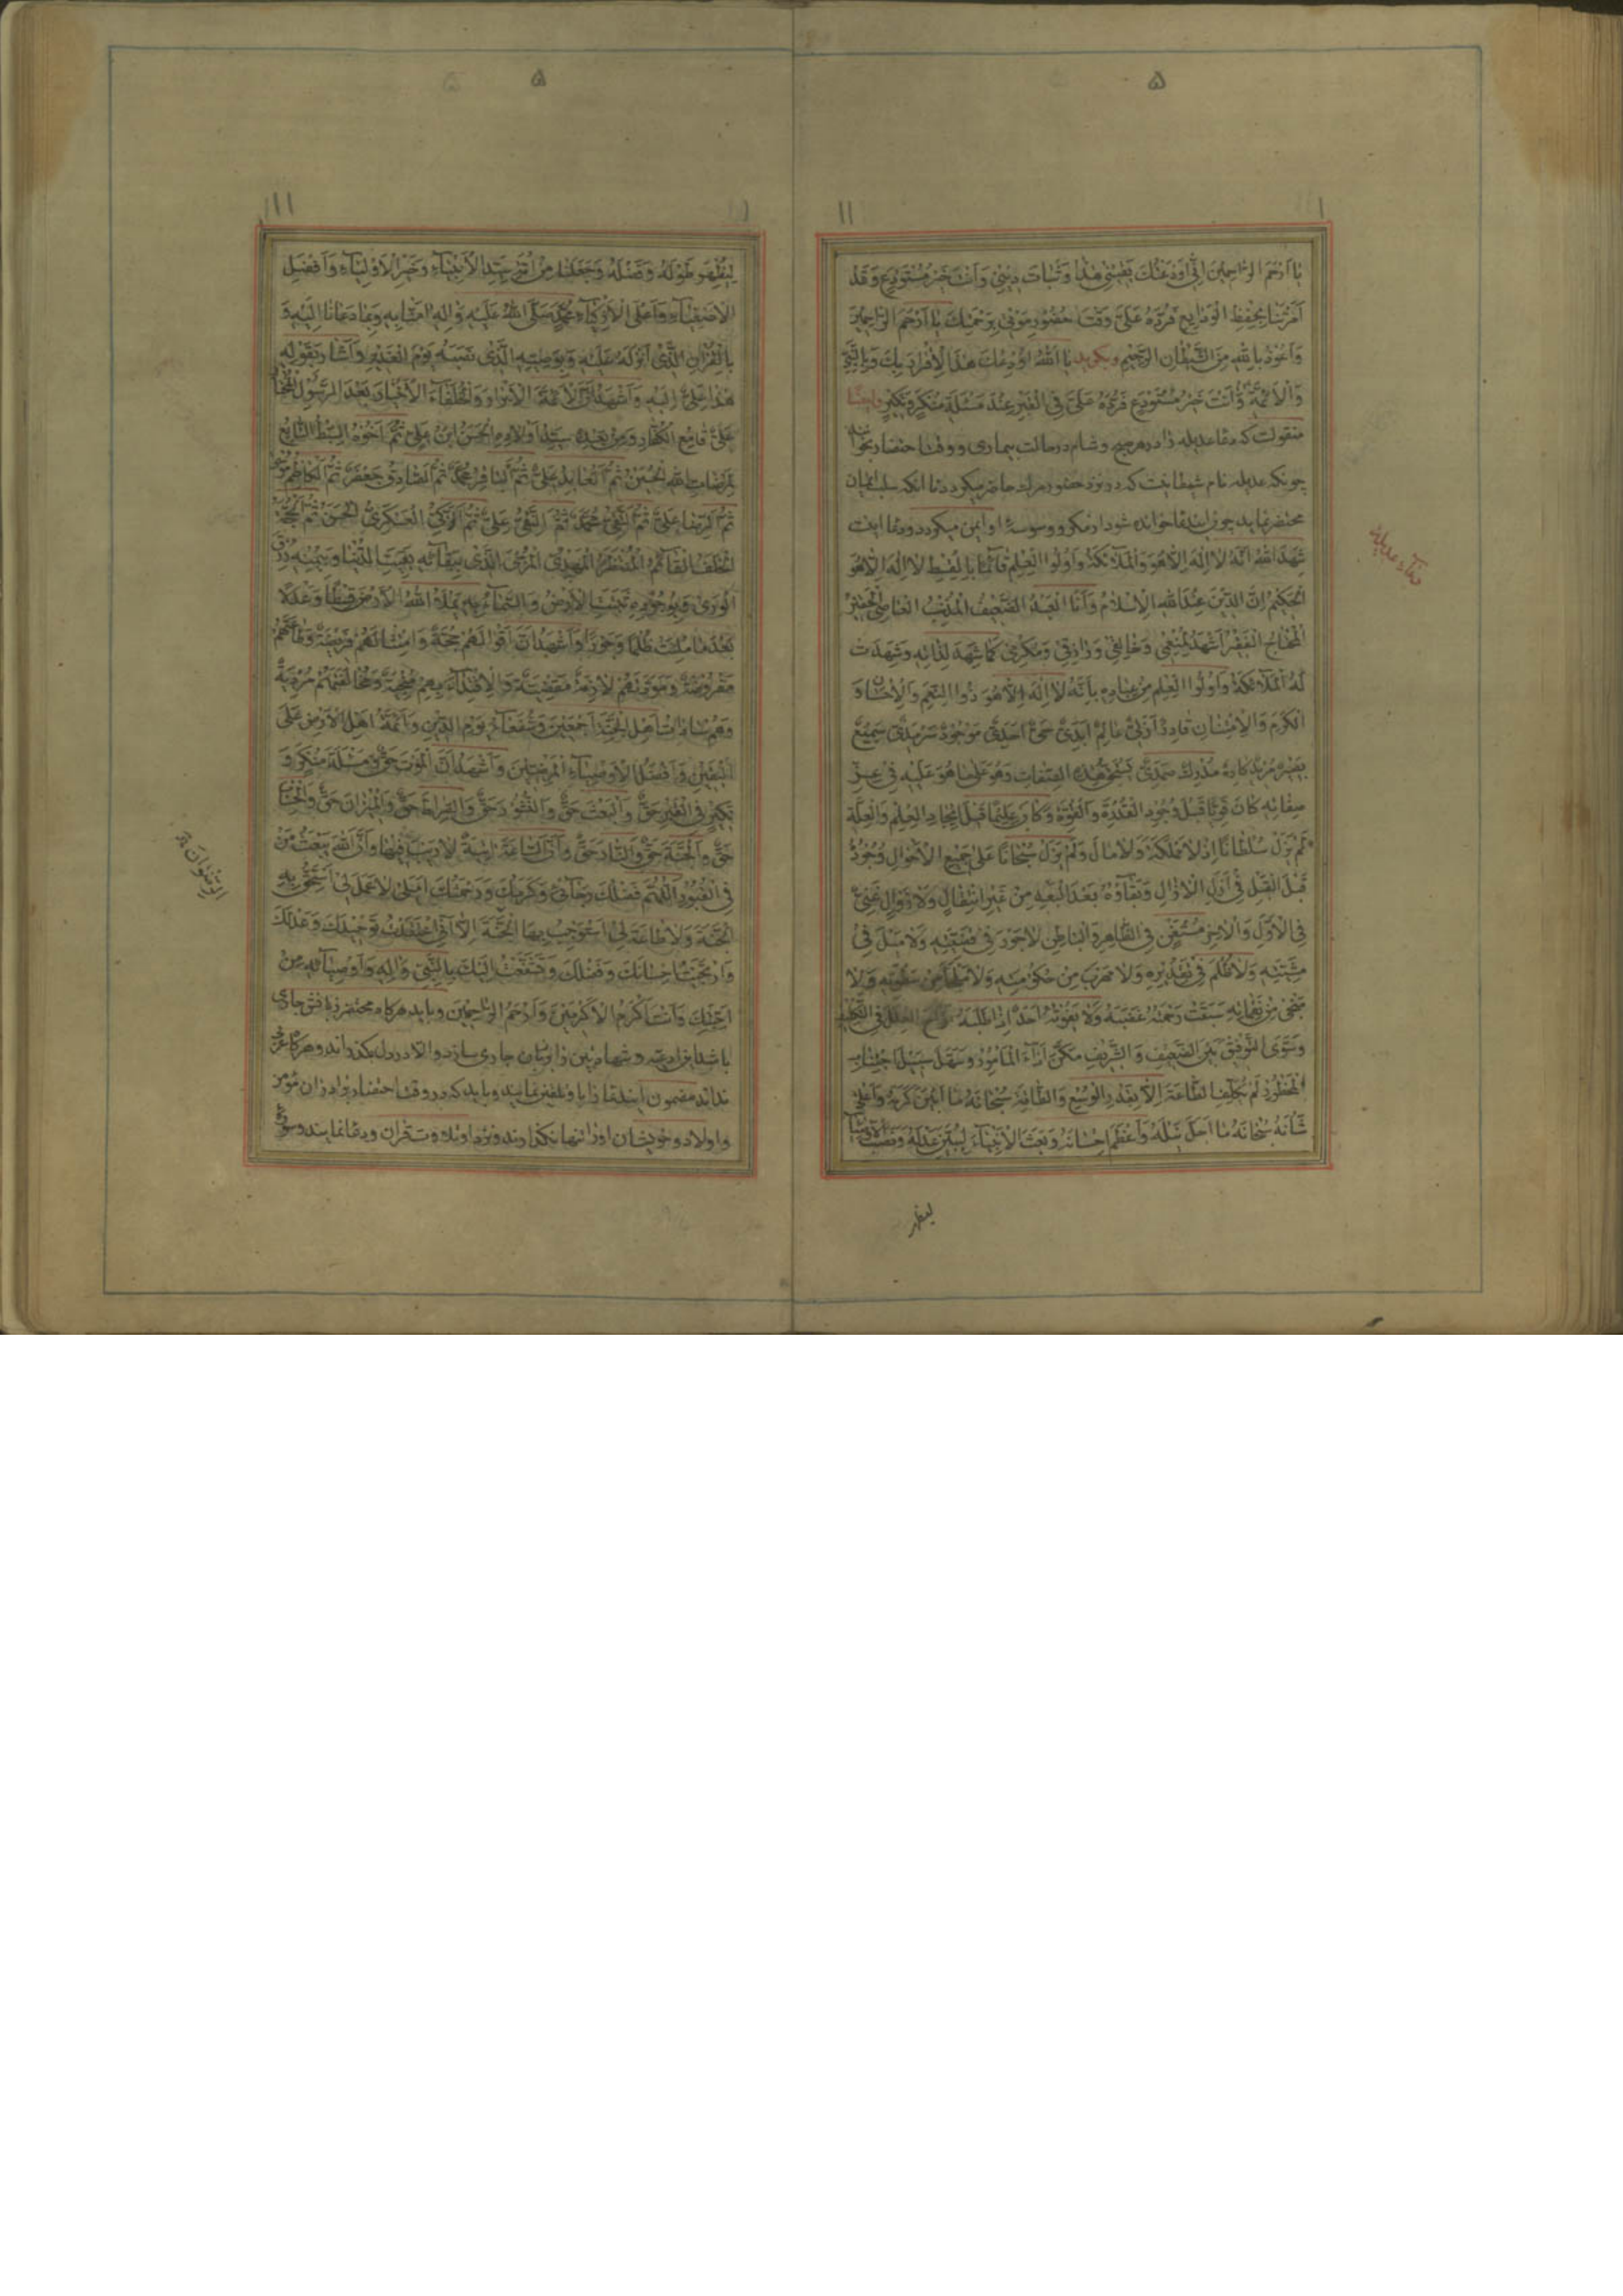 ۵
۱۱
يا اَرْحَمَ الرّاحِمينَ اِنّى اَوْدَعْتُكَ يَقينى هٰذا وَثَباتَ دينى وَاَنْتَ خَيْرُ مُسْتَوْدَعٍ وَقَدْ
اَمَرْتَنا بِحِفْظِ الْوَدايِعِ فَرُدَّهُ عَلَىَّ وَقْتَ حُضُورِ مَوْتى بِرَحْمَتِكَ يا اَرْحَمَ الرّاحِمينَ
وَاَعُوذُ بِاللّٰهِ مِنَ الشَّيْطانِ الرَّجيمِ وبگويد يا اَللّٰهُ اَوْدَعْتُكَ هٰذَا الْاِقْرارَ بِكَ وَبِالنَّبِىِّ
وَالْاَئِمَّةِ وَاَنْتَ خَيْرُ مُسْتَوْدَعٍ فَرُدَّهُ عَلَىَّ فِى الْقَبْرِ عِنْدَ مَسْئَلَةِ مُنْكَرٍ وَنَكيرٍ وايضا
منقولست كه دعا عديله را در هر صبح و شام در حالت بيمارى و وقت احتضار بخواند
چونكه عديله نام شيطانيست كه در نزد حضور مرك حاضر ميكردد تا انكه سلب ايمان
محتضر نمايد چون ايندعا خوانده شود از مكر و وسوسهٔ او ايمن ميكردد و دعا اينست
شَهِدَ اللّٰهُ اَنَّهُ لا اِلٰهَ اِلّا هُوَ وَالْمَلآئِكَةُ وَاُولُوا الْعِلْمِ قآئِمًا بِالْقِسْطِ لا اِلٰهَ اِلّا هُوَ
الْحَكيمُ اِنَّ الدّينَ عِنْدَ اللّٰهِ الْاِسْلامُ وَاَنَا الْعَبْدُ الضَّعيفُ الْمُذْنِبُ الْعاصِى الْحَقيرُ
الْمُحْتاجُ الْفَقيرُ اَشْهَدُ لِمُنْعِمى وَخالِقى وَرازِقى وَمُكْرِمى كَما شَهِدَ لِذاتِهِ وَشَهِدَتْ
لَهُ الْمَلآئِكَةُ وَاُولُوا الْعِلْمِ مِنْ عِبادِهِ بِاَنَّهُ لا اِلٰهَ اِلّا هُوَ ذُوا النِّعَمِ وَالْاِحْسانِ وَ
الْكَرَمِ وَالْاِمْتِنانِ قادِرٌ اَزَلِىٌّ عالِمٌ اَبَدِىٌّ حَىٌّ اَحَدِىٌّ مَوْجُودٌ سَرْمَدِىٌّ سَميعٌ
بَصيرٌ مُريدٌ كارِهٌ مُدْرِكٌ صَمَدِىٌّ يَسْتَحِقُّ هٰذِهِ الصِّفاتِ وَهُوَ عَلى ما هُوَ عَلَيْهِ فى عِزِّ
صِفاتِهِ كانَ قَوِيًّا قَبْلَ وُجُودِ الْقُدْرَةِ وَالْقُوَّةِ وَكانَ عَليمًا قَبْلَ ايجادِ الْعِلْمِ وَالْعِلَّةِ
لَمْ يَزَلْ سُلْطانًا اِذْ لا مَمْلَكَةَ وَلا مالَ وَلَمْ يَزَلْ سُبْحانًا عَلى جَميعِ الْاَحْوالِ وُجُودُهُ
قَبْلَ الْقَبْلِ فى اَزَلِ الْاٰزالِ وَبَقآؤُهُ بَعْدَ الْبَعْدِ مِنْ غَيْرِ انْتِقالٍ وَلا زَوالٍ غَنِىٌّ
فِى الْاَوَّلِ وَالْاٰخِرِ مُسْتَغْنٍ فِى الظّاهِرِ وَالْباطِنِ لا جَوْرَ فى قَضِيَّتِهِ وَلا مَيْلَ فى
مَشِيَّتِهِ وَلا ظُلْمَ فى تَقْديرِهِ وَلا مَهْرَبَ مِنْ حُكُومَتِهِ وَلا مَلْجَأَ مِنْ سَطْوَتِهِ وَلا
مَنْجى مِنْ نَقِماتِهِ سَبَقَتْ رَحْمَتُهُ غَضَبَهُ وَلا يَفُوتُهُ اَحَدٌ اِذا طَلَبَهُ اَزاحَ الْعِلَلَ فِى التَّكْليفِ
وَسَوَّى التَّوْفيقَ بَيْنَ الضَّعيفِ وَالشَّريفِ مَكَّنَ اَدآءَ الْمَاْمُورِ وَسَهَّلَ سَبيلَ اجْتِنابِ
الْمَحْظُورِ لَمْ يُكَلِّفِ الطّاعَةَ اِلّا بِقَدْرِ الْوُسْعِ وَالطّاقَةِ سُبْحانَهُ ما اَبْيَنَ كَرَمَهُ وَاَعْلى
شَاْنَهُ سُبْحانَهُ ما اَجَلَّ نَيْلَهُ وَاَعْظَمَ اِحْسانَهُ وَبَعَثَ الْاَنْبِيآءَ لِيُبَيِّنَ عَدْلَهُ وَنَصَبَ الْاَوْصِيآءَ
ليظهر
دعآء عديله
۵
۱۱۱
لِيُظْهِرَ طَوْلَهُ وَفَضْلَهُ وَجَعَلَنا مِنْ اُمَّةِ سَيِّدِ الْاَنْبِيآءِ وَخَيْرِ الْاَوْلِيآءِ وَاَفْضَلِ
الْاَصْفِيآءِ وَاَعْلَى الْاَزْكِيآءِ مُحَمَّدٍ صَلَّى اللّٰهُ عَلَيْهِ وَاٰلِهِ اٰمَنّا بِهِ وَبِما دَعانا اِلَيْهِ وَ
بِالْقُرْاٰنِ الَّذى اَنْزَلَهُ عَلَيْهِ وَبِوَصِيِّهِ الَّذى نَصَبَهُ يَوْمَ الْغَديرِ وَاَشارَ بِقَوْلِهِ
هٰذا عَلِىٌّ اِلَيْهِ وَاَشْهَدُ اَنَّ الْاَئِمَّةَ الْاَبْرارَ وَالْخُلَفآءَ الْاَخْيارَ بَعْدَ الرَّسُولِ الْمُخْتارِ
عَلِىٌّ قامِعُ الْكُفّارِ وَمِنْ بَعْدِهِ سَيِّدُ اَوْلادِهِ الْحَسَنُ ابْنُ عَلِىٍّ ثُمَّ اَخُوهُ السِّبْطُ التّابِعُ
لِمَرْضاتِ اللّٰهِ الْحُسَيْنُ ثُمَّ الْعابِدُ عَلِىٌّ ثُمَّ الْباقِرُ مُحَمَّدٌ ثُمَّ الصّادِقُ جَعْفَرٌ ثُمَّ الْكاظِمُ مُوسى
ثُمَّ الرِّضا عَلِىٌّ ثُمَّ التَّقِىُّ مُحَمَّدٌ ثُمَّ النَّقِىُّ عَلِىٌّ ثُمَّ الزَّكِىُّ الْعَسْكَرِىُّ الْحَسَنُ ثُمَّ الْحُجَّةُ
الْخَلَفُ الْقآئِمُ الْمُنْتَظَرُ الْمَهْدِىُّ الْمُرْجَى الَّذى بِبَقآئِهِ بَقِيَتِ الدُّنْيا وَبِيُمْنِهِ رُزِقَ
الْوَرى وَبِوُجُودِهِ ثَبَتَتِ الْاَرْضُ وَالسَّمآءُ بِهِ يَمْلَاُ اللّٰهُ الْاَرْضَ قِسْطًا وَعَدْلًا
بَعْدَ ما مُلِئَتْ ظُلْمًا وَجَوْرًا وَاَشْهَدُ اَنَّ اَقْوالَهُمْ حُجَّةٌ وَامْتِثالَهُمْ فَريضَةٌ وَطاعَتَهُمْ
مَفْرُوضَةٌ وَمَوَدَّتَهُمْ لازِمَةٌ مَقْضِيَّةٌ وَالْاِقْتِدآءَ بِهِمْ مُنْجِيَةٌ وَمُخالَفَتَهُمْ مُرْدِيَةٌ
وَهُمْ ساداتُ اَهْلِ الْجَنَّةِ اَجْمَعينَ وَشُفَعآءُ يَوْمِ الدّينِ وَاَئِمَّةُ اَهْلِ الْاَرْضِ عَلَى
الْيَقينِ وَاَفْضَلُ الْاَوْصِيآءِ الْمَرْضِيّينَ وَاَشْهَدُ اَنَّ الْمَوْتَ حَقٌّ وَمَسْئَلَةَ مُنْكَرٍ وَ
نَكيرٍ فِى الْقَبْرِ حَقٌّ وَالْبَعْثَ حَقٌّ وَالنُّشُورَ حَقٌّ وَالصِّراطَ حَقٌّ وَالْميزانَ حَقٌّ وَالْحِسابَ
حَقٌّ وَالْجَنَّةَ حَقٌّ وَالنّارَ حَقٌّ وَاَنَّ السّاعَةَ اٰتِيَةٌ لا رَيْبَ فيها وَاَنَّ اللّٰهَ يَبْعَثُ مَنْ
فِى الْقُبُورِ اَللّٰهُمَّ فَضْلُكَ رَجآئى وَكَرَمُكَ وَرَحْمَتُكَ اَمَلى لا عَمَلَ لى اَسْتَحِقُّ بِهِ
الْجَنَّةَ وَلا طاعَةَ لى اَسْتَوْجِبُ بِهَا الْجَنَّةَ اِلّا اَنِّى اعْتَقَدْتُ تَوْحيدَكَ وَعَدْلَكَ
وَارْتَجَيْتُ اِحْسانَكَ وَفَضْلَكَ وَتَشَفَّعْتُ اِلَيْكَ بِالنَّبِىِّ وَاٰلِهِ وَاَوْصِيآئِهِ مِنْ
اَحِبَّتِكَ وَاَنْتَ اَكْرَمُ الْاَكْرَمينَ وَاَرْحَمُ الرّاحِمينَ وبايد هركاه محتضر زبانش جارى
باشد اين ادعيه و شهادتين را بزبان جارى سازد والا در دل بكذراند و هركاه عربى
نداند مضمون ايندعا را باو تلقين نمايند و بايد كه در وقت احتضار برادران مؤمن
و اولاد و خويشان او را تنها نكذارند و نزد او تلاوت قران و دعا نمايند و سوره
الرِّضْوانَ